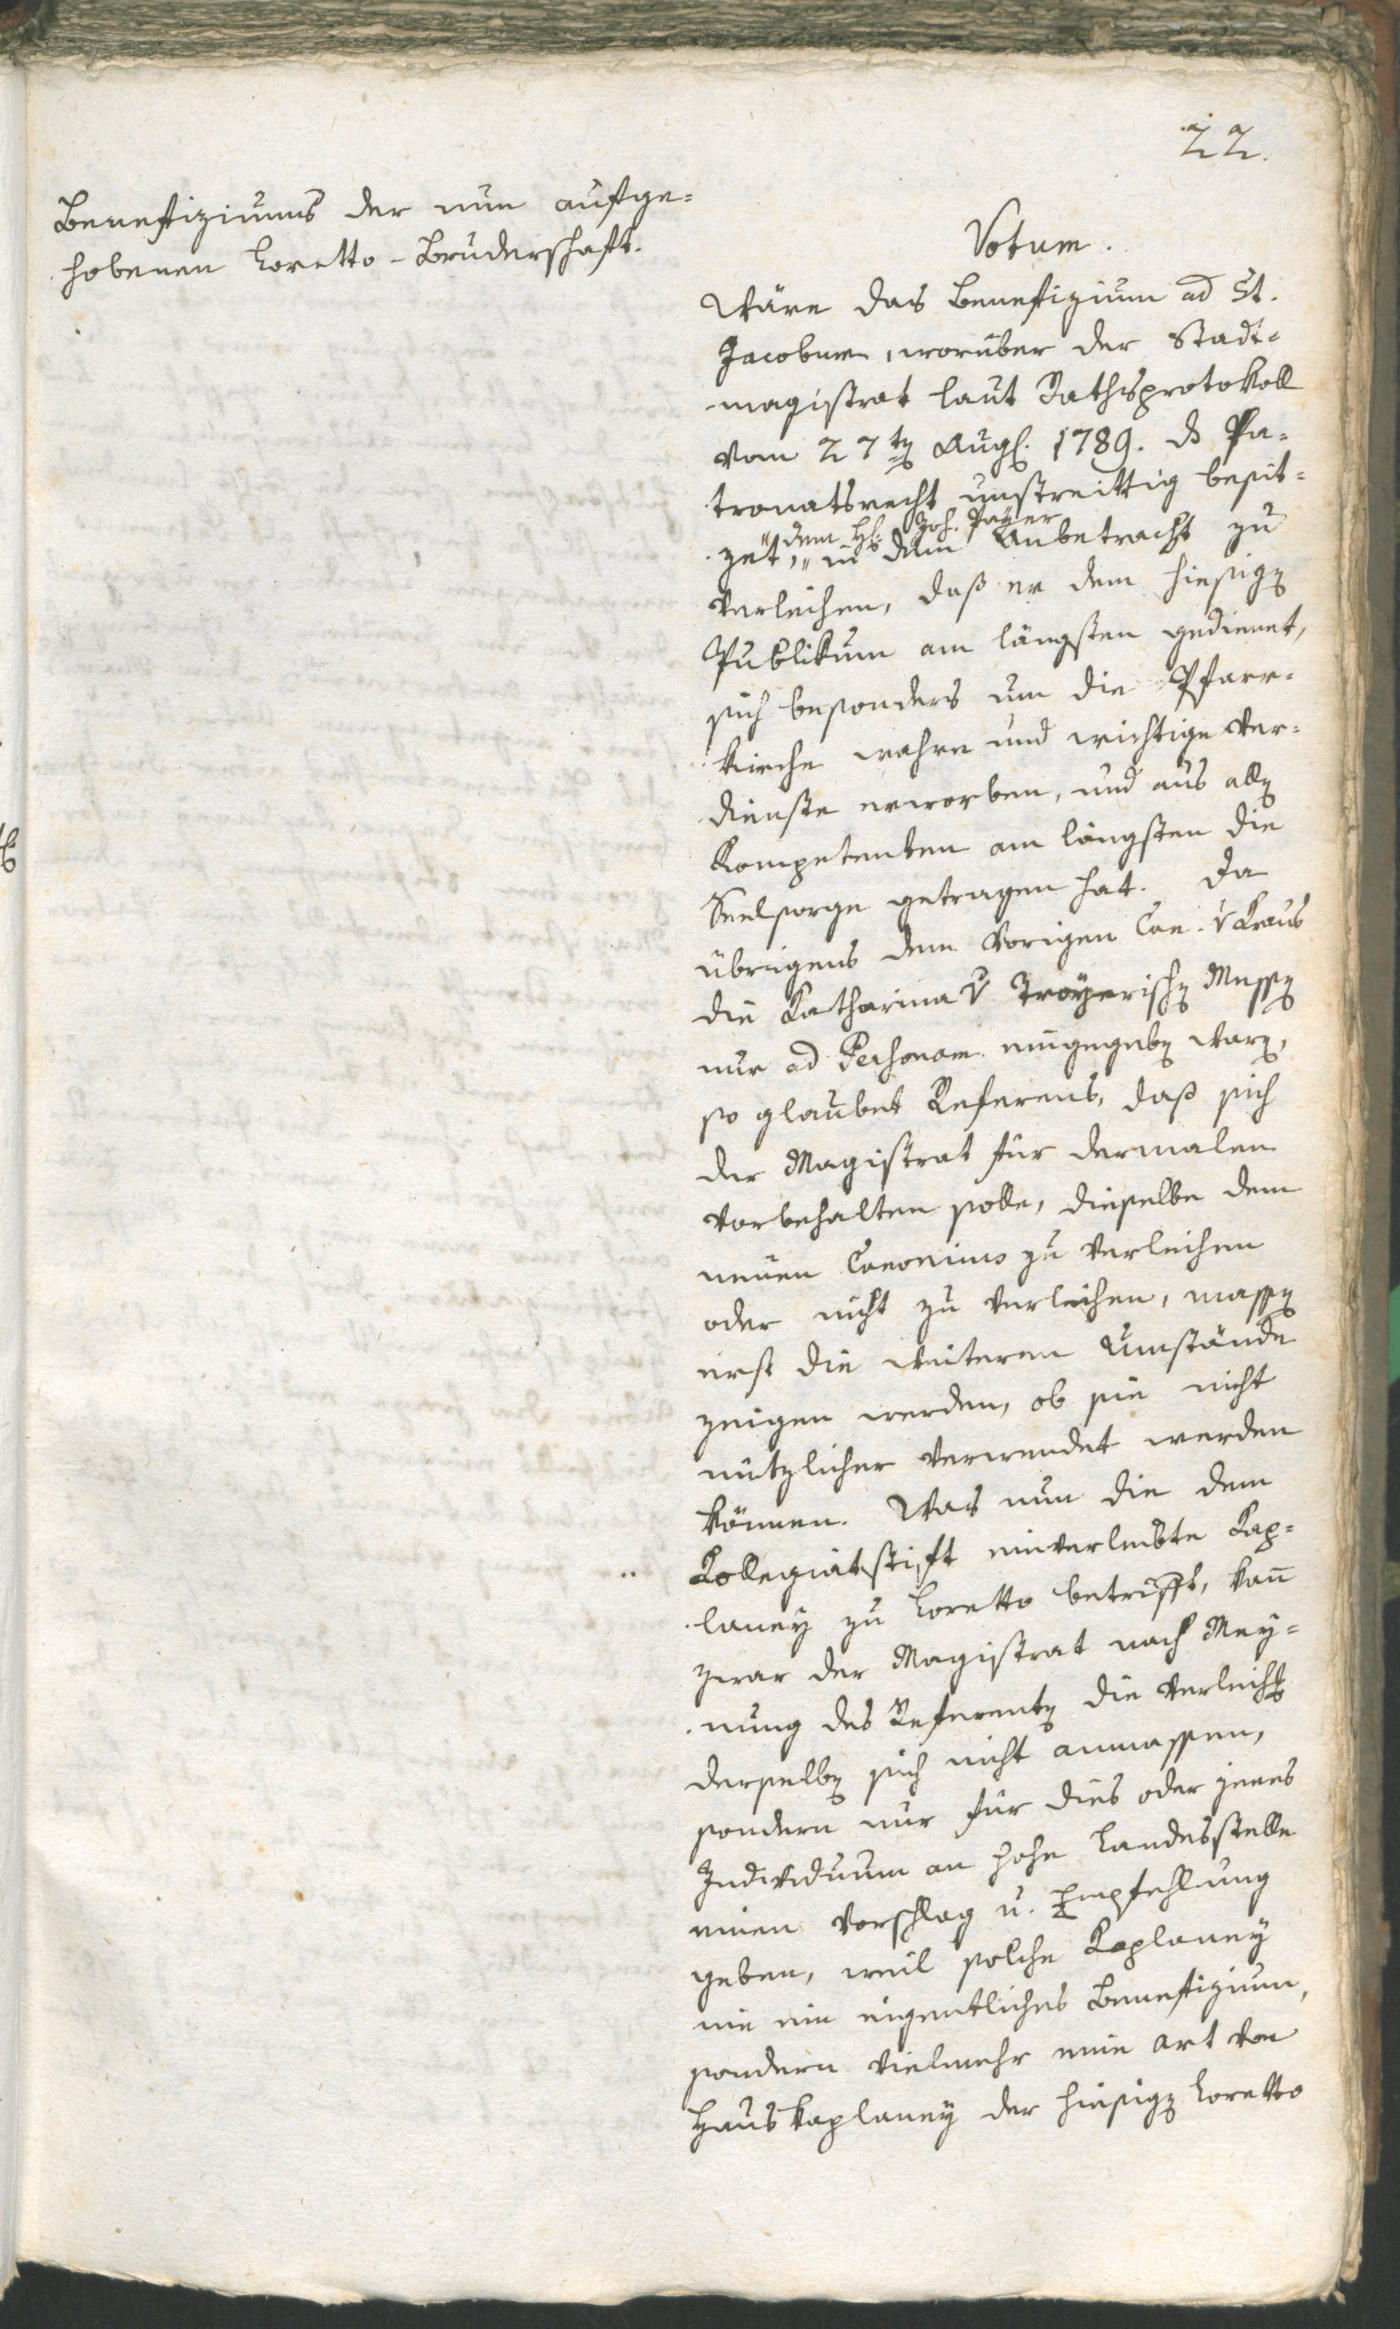 22.
Benefiziums der nun aufge=
hobenen Loretto-Bruderschaft.
Votum.
Wäre das Benefizium ad St.
Jacobum, worüber der Stadt=
magistrat laut Rathsprotokoll
vom 27ten Aug. 1789. ds Pa=
tronatsrecht unstreittig besit=
" dem H: Joh. Payer
zet, " in dem Anbetracht zu
verleihen, daß er dem hiesigen
Publikum am längsten gedienet,
sich besonders um die Pfarr=
kirche wahre und wichtige Ver=
dienste erworben, und aus allen
Kompetenten am längsten die
Seelsorge getragen hat. Da
übrigens dem vorigen Can. v Kraus
die Katharina v Troyerischen Messen
nur ad Personam eingegeben waren,
so glaubet Referens, daß sich
der Magistrat für dermalen
vorbehalten solle, dieselbe dem
neuen Canonicus zu verleihen
oder nicht zu verleihen, massen
erst die weiteren Umstände
zeigen werden, ob sie nicht
nützlicher verwendet werden
können. Was nun die dem
Kollegiatstift einverleibte Kap=
laney zu Loretto betrifft, kann
zwar der Magistrat nach Mey=
nung des Referenten die Verleihung
derselben sich nicht anmassen,
sondern nur für dies oder jenes
Individuum an hohe Landesstelle
einen Vorschlag u. Empfehlung
geben, weil solche Kaplaney
nie ein eigentliches Benefizium,
sondern vielmehr eine Art von
Hauskaplaney der hiesigen Loretto